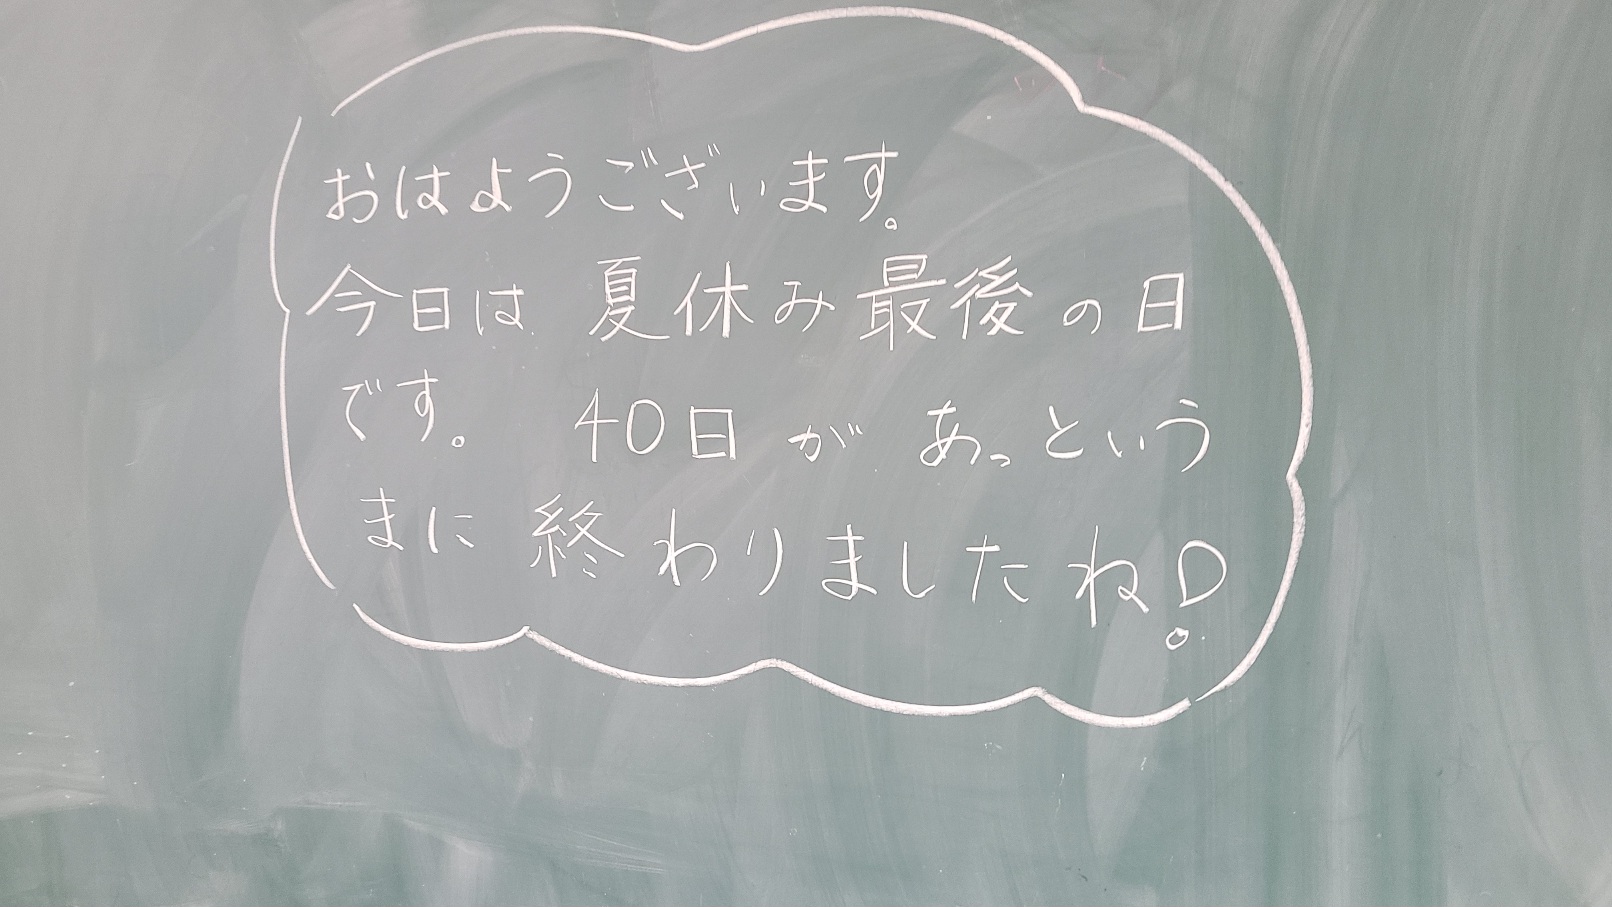 おはようございます。
今日は 夏休み最後の日
です。 40日が あっという
まに 終わりましたね!